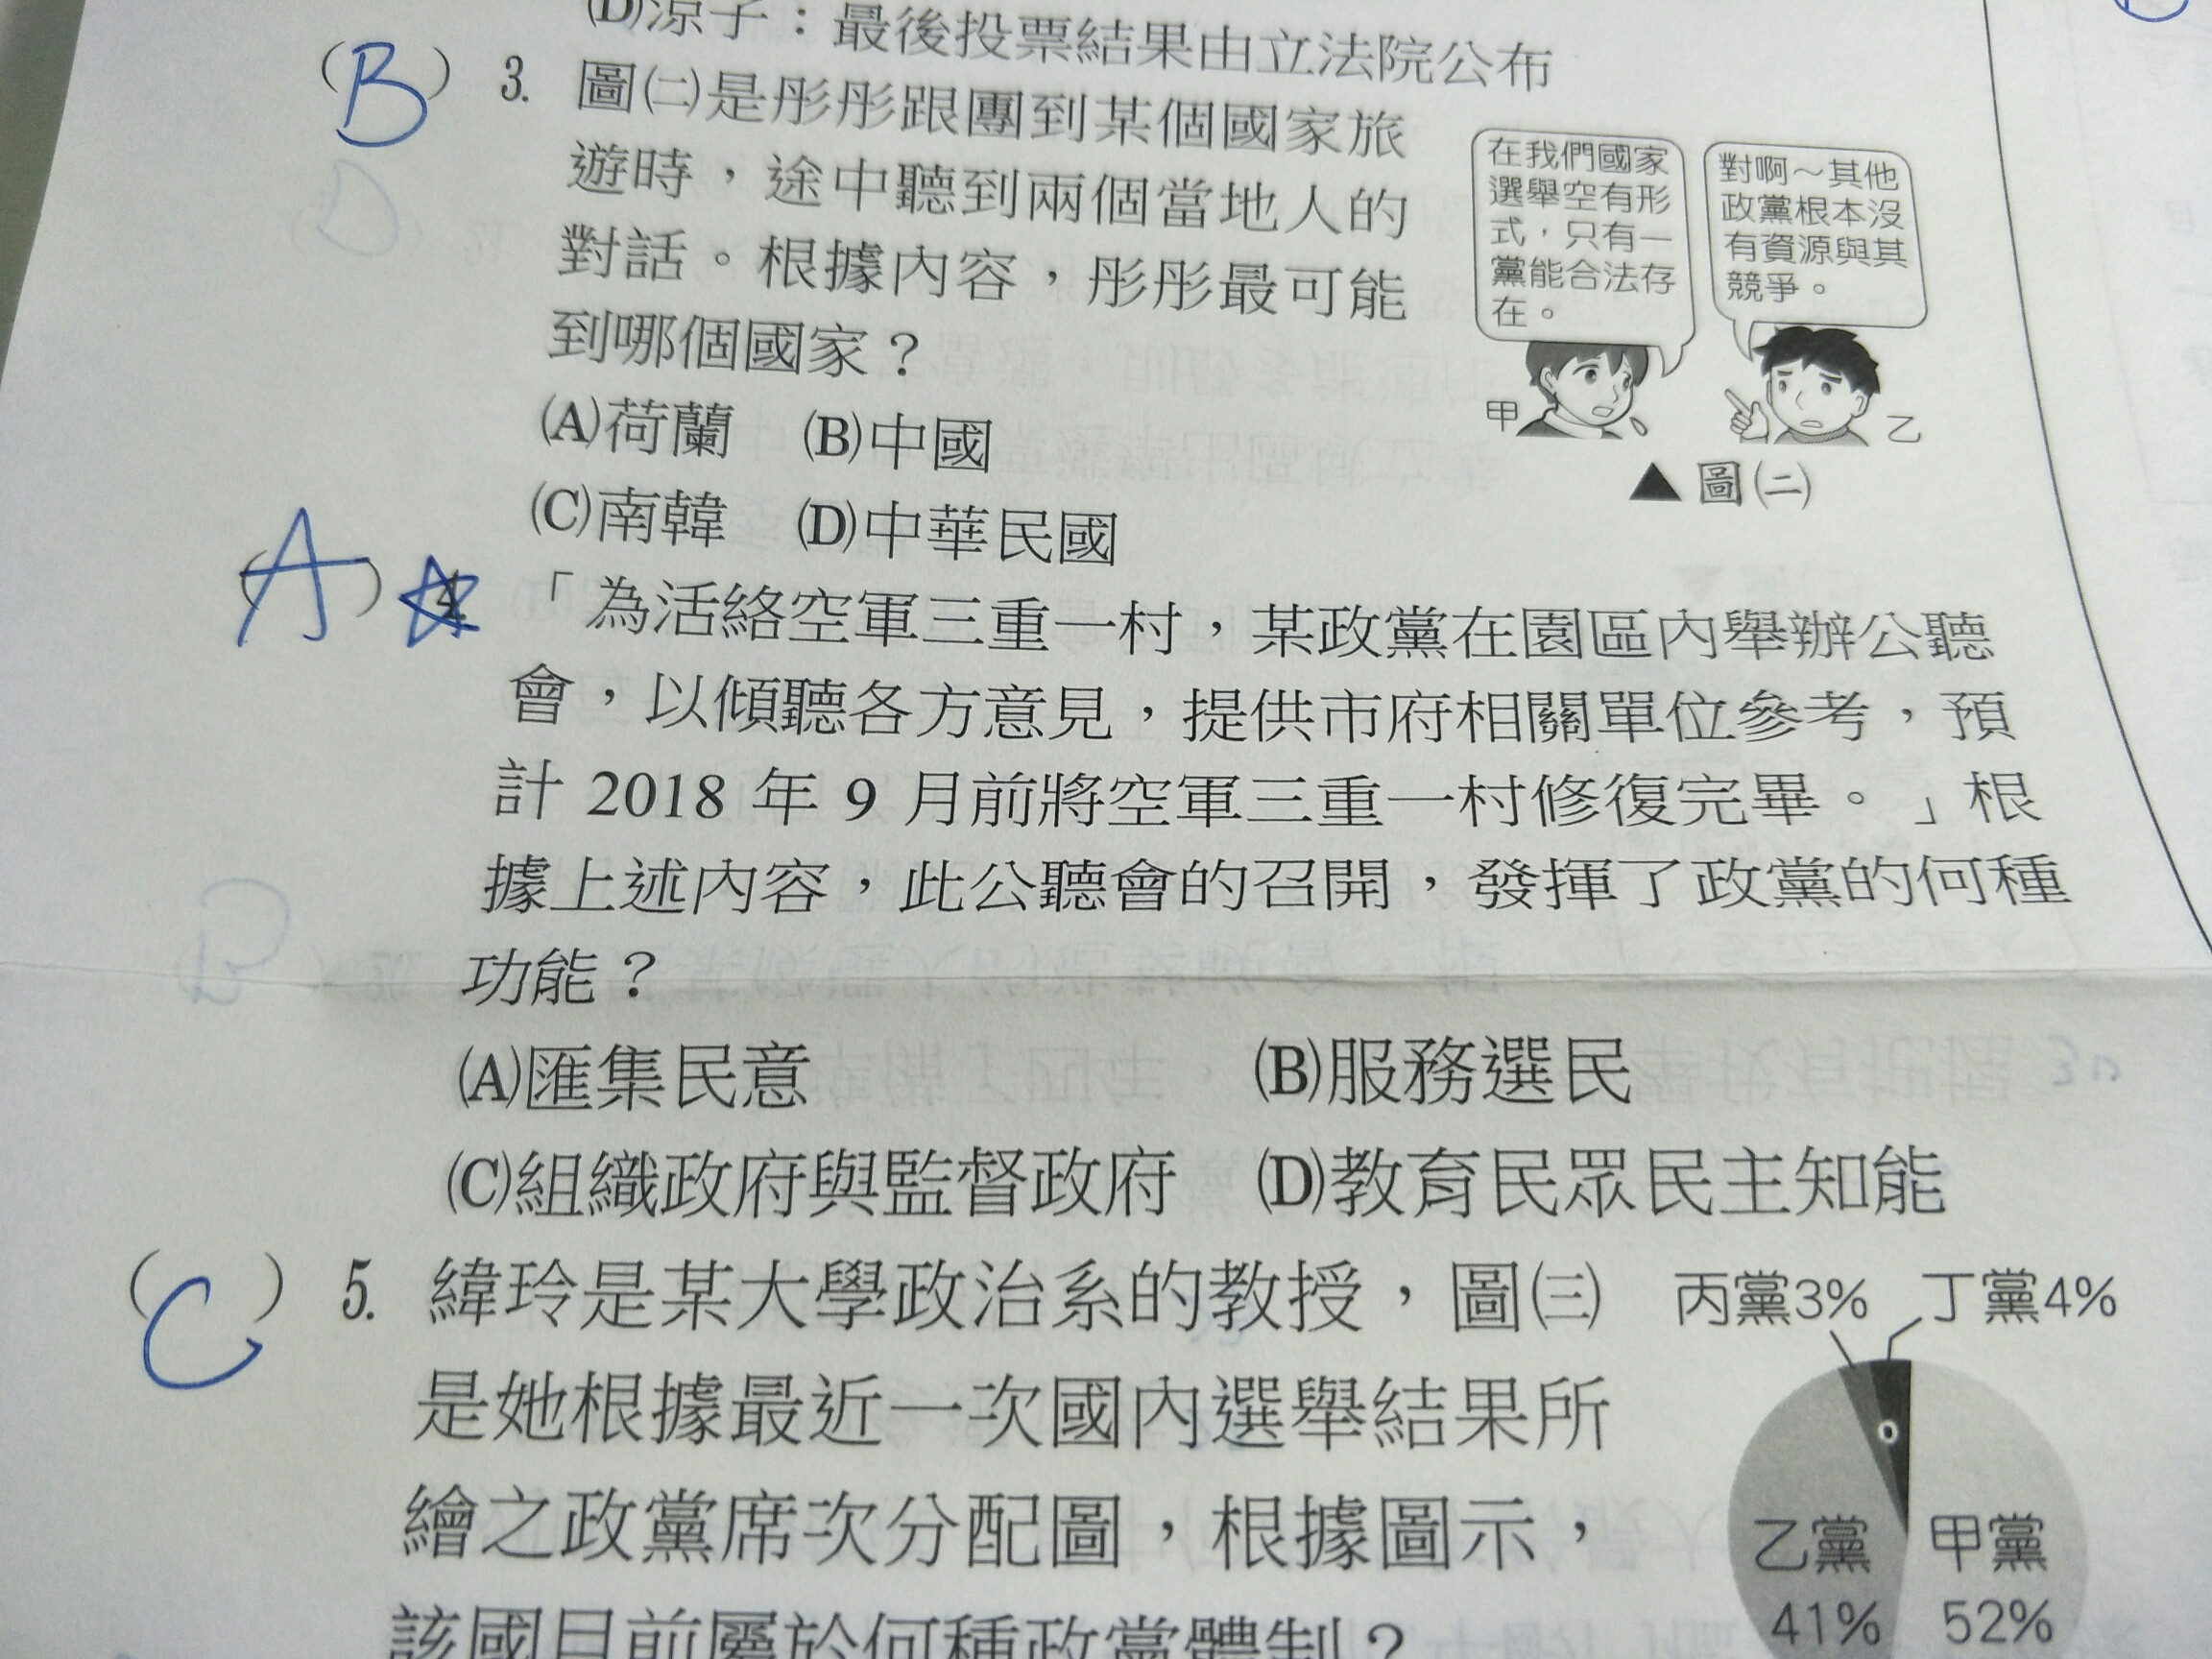 (D)涼子：最後投票結果由立法院公布
(B) 3. 圖㈡是彤彤跟團到某個國家旅
遊時，途中聽到兩個當地人的
對話。根據內容，彤彤最可能
到哪個國家？
(A)荷蘭 (B)中國
(C)南韓 (D)中華民國
在我們國家
選舉空有形
式，只有一
黨能合法存
在。
對啊～其他
政黨根本沒
有資源與其
競爭。
甲
乙
▲圖㈡
(A) 4. 「為活絡空軍三重一村，某政黨在園區內舉辦公聽
會，以傾聽各方意見，提供市府相關單位參考，預
計 2018 年 9 月前將空軍三重一村修復完畢。」根
據上述內容，此公聽會的召開，發揮了政黨的何種
功能？
(A)匯集民意 (B)服務選民
(C)組織政府與監督政府 (D)教育民眾民主知能
(C) 5. 緯玲是某大學政治系的教授，圖㈢
是她根據最近一次國內選舉結果所
繪之政黨席次分配圖，根據圖示，
該國目前屬於何種政黨體制？
丙黨3% 丁黨4%
乙黨
41%
甲黨
52%